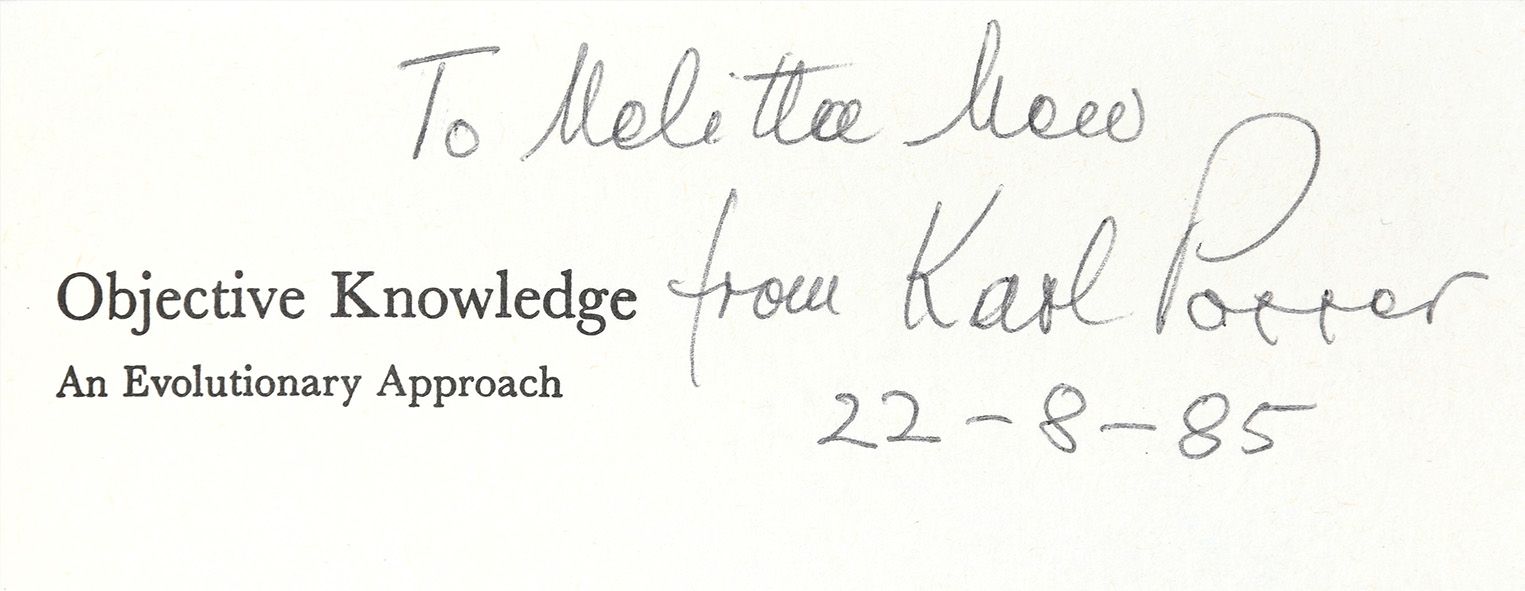 To Melitta Mew
from Karl Popper
Objective Knowledge
An Evolutionary Approach
22-8-85